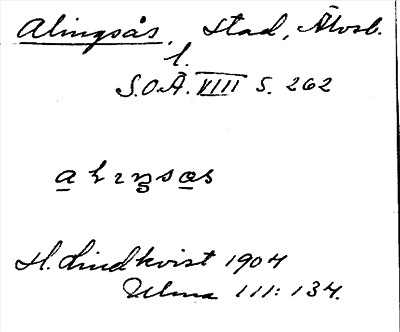 Alingsås, stad, Älvsb.
l.
S.O.Ä. VIII s. 262
H. Lindkvist 1904
Ulma 111: 134.